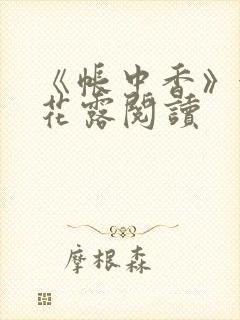 《帳中香》
花露閱讀
摩根森